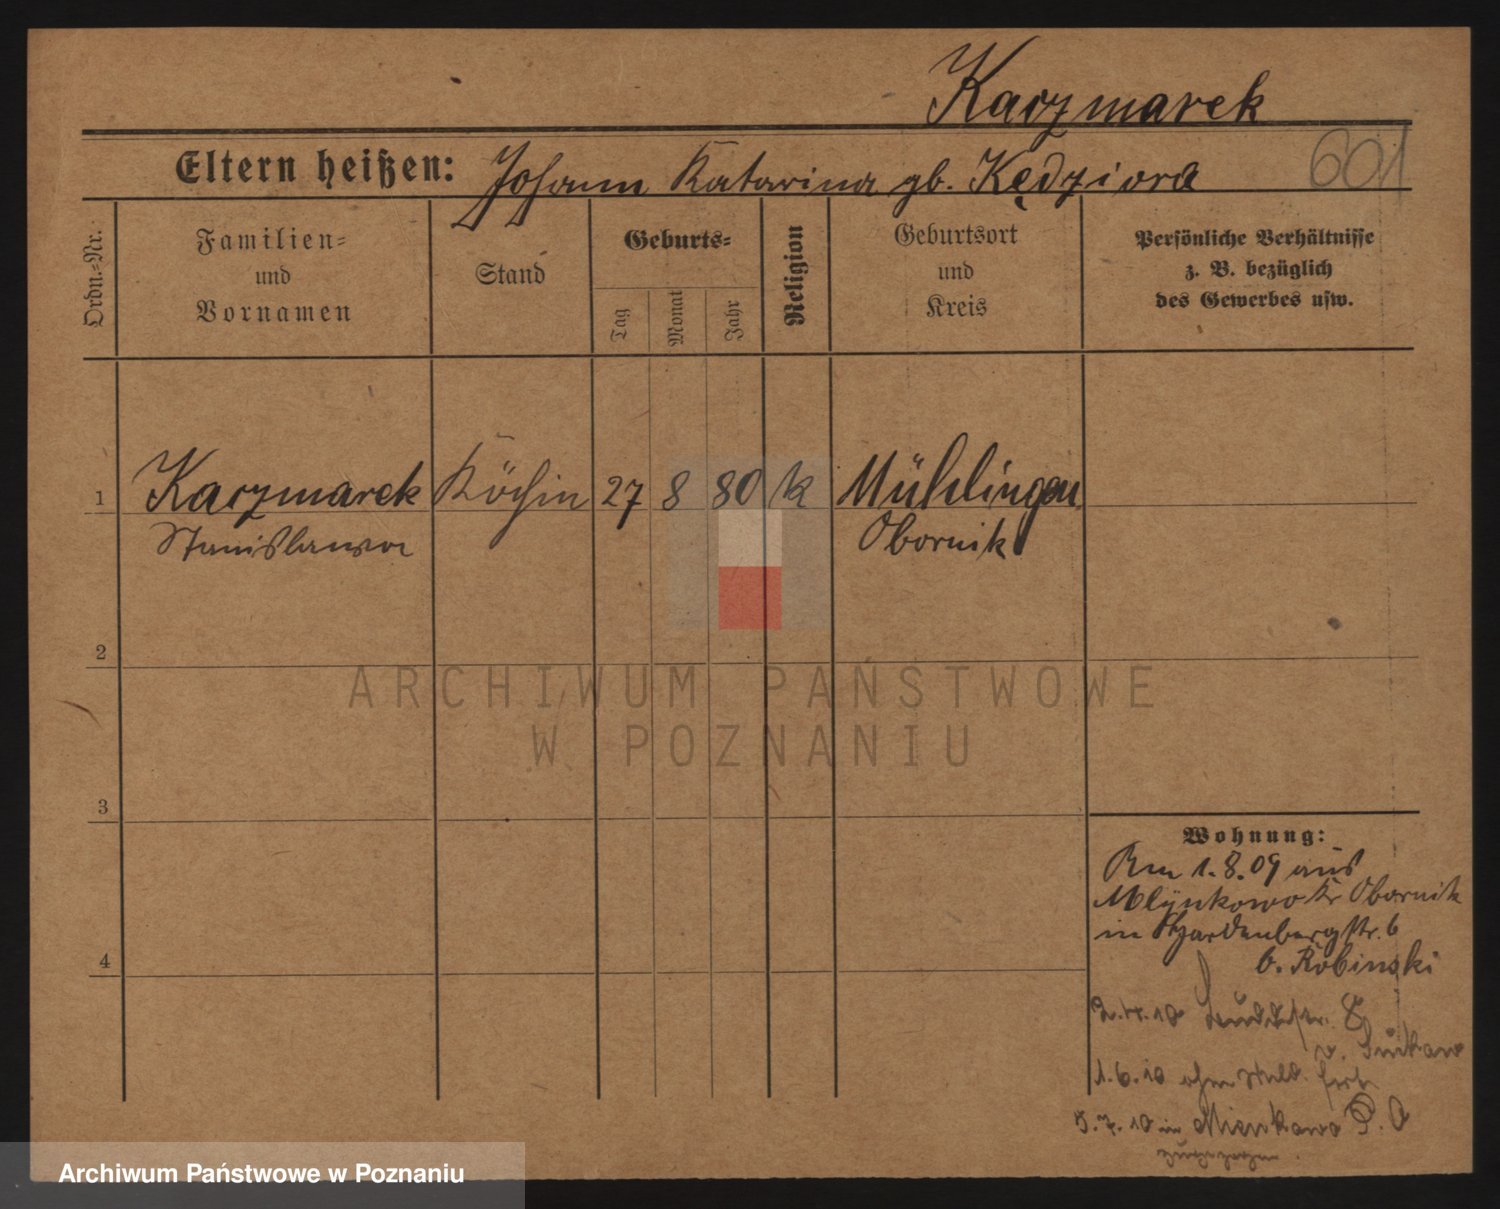 Kaczmarek
Eltern heißen: Johann Katarina gb. Kędziora
601
Ordn.-Nr.
Familien-
und
Vornamen
Stand
Geburts-
Tag
Monat
Jahr
Religion
Geburtsort
und
Kreis
Persönliche Verhältnisse
z. B. bezüglich
des Gewerbes usw.
1 Kaczmarek Köchin 27 8 80 k Mühlingen
Stanislawa Obornik
2
ARCHIWUM PAŃSTWOWE
W POZNANIU
3
Wohnung:
Am 1.8.09 aus
Mlynkowo Kr Obornik
in Hardenbergstr. 6
b. Robinski
4
2.4.10 8
v.
1.6.10 ohne fort
5.7.10 in P. O
zugezogen
Archiwum Państwowe w Poznaniu